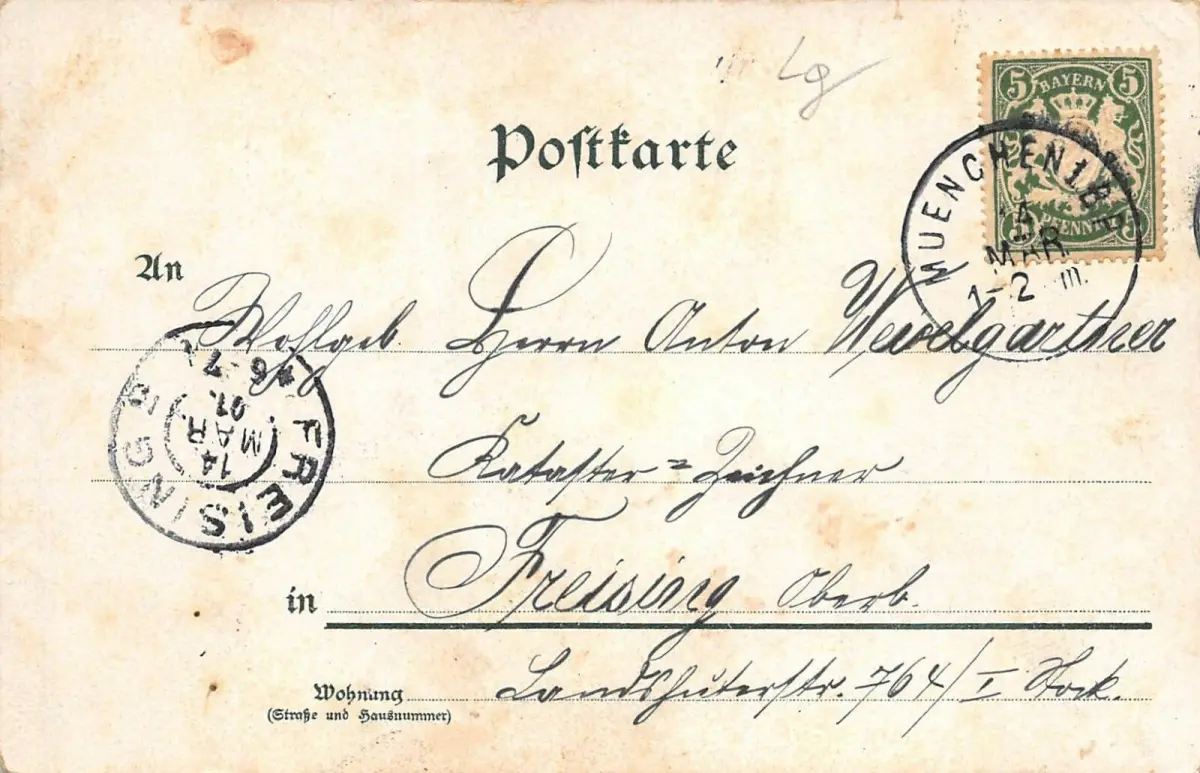 Lg
Postkarte
5 BAYERN 5
5 PFENNIG 5
MUENCHEN 1 B.
14 MAR
1-2 m.
An
Wohlgeb. Herrn Anton
Kataster=Zeichner
in Freising Oberb.
Wohnung Landshuterstr. 764/I Stock.
(Straße und Hausnummer)
FREISING
14
MAR
01.
6-7